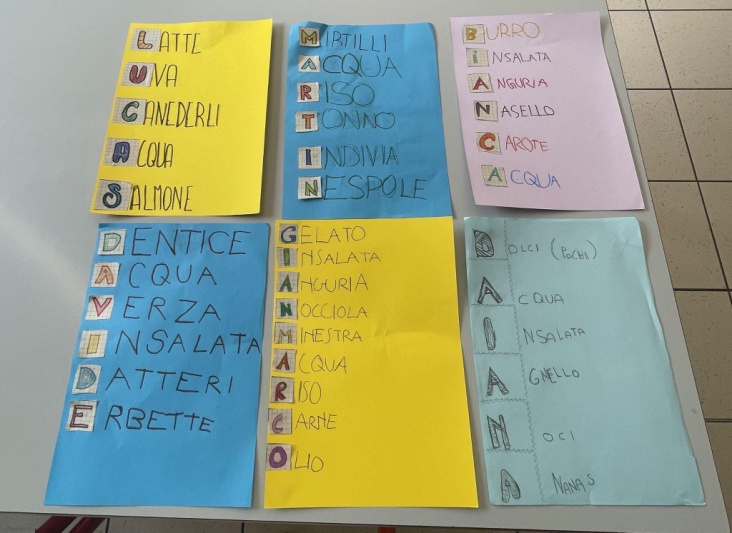 LATTE
UVA
CANEDERLI
ACQUA
SALMONE
MIRTILLI
ACQUA
RISO
TONNO
INDIVIA
NESPOLE
BURRO
iNSALATA
ANGURIA
NASELLO
CAROTE
ACQUA
DENTICE
ACQUA
VERZA
INSALATA
DATTERI
ERBETTE
GELATO
INSALATA
ANGURIA
NOCCIOLA
MINESTRA
ACQUA
RISO
CARNE
OLIO
DOLCI (POCHI)
ACQUA
INSALATA
AGNELLO
NOCI
ANANAS